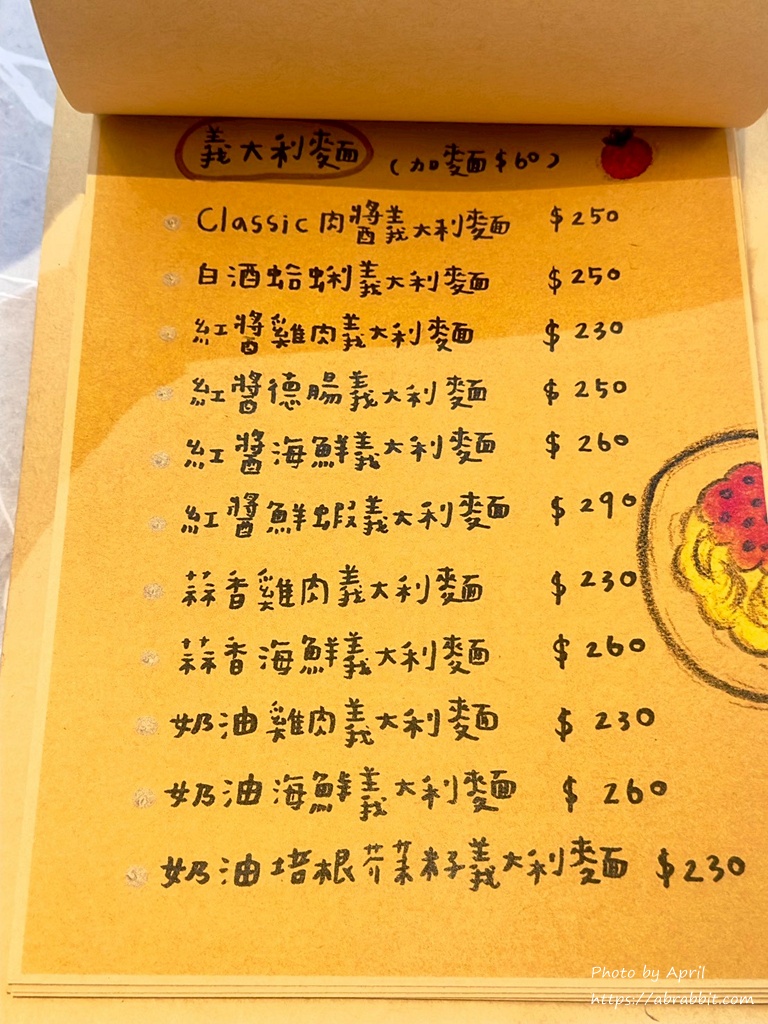 義大利麵 (加麵$60)
Classic肉醬義大利麵 $250
白酒蛤蜊義大利麵 $250
紅醬雞肉義大利麵 $230
紅醬德腸義大利麵 $250
紅醬海鮮義大利麵 $260
紅醬鮮蝦義大利麵 $290
蒜香雞肉義大利麵 $230
蒜香海鮮義大利麵 $260
奶油雞肉義大利麵 $230
奶油海鮮義大利麵 $260
奶油培根芥茉籽義大利麵 $230
Photo by April
https://abrabbit.com